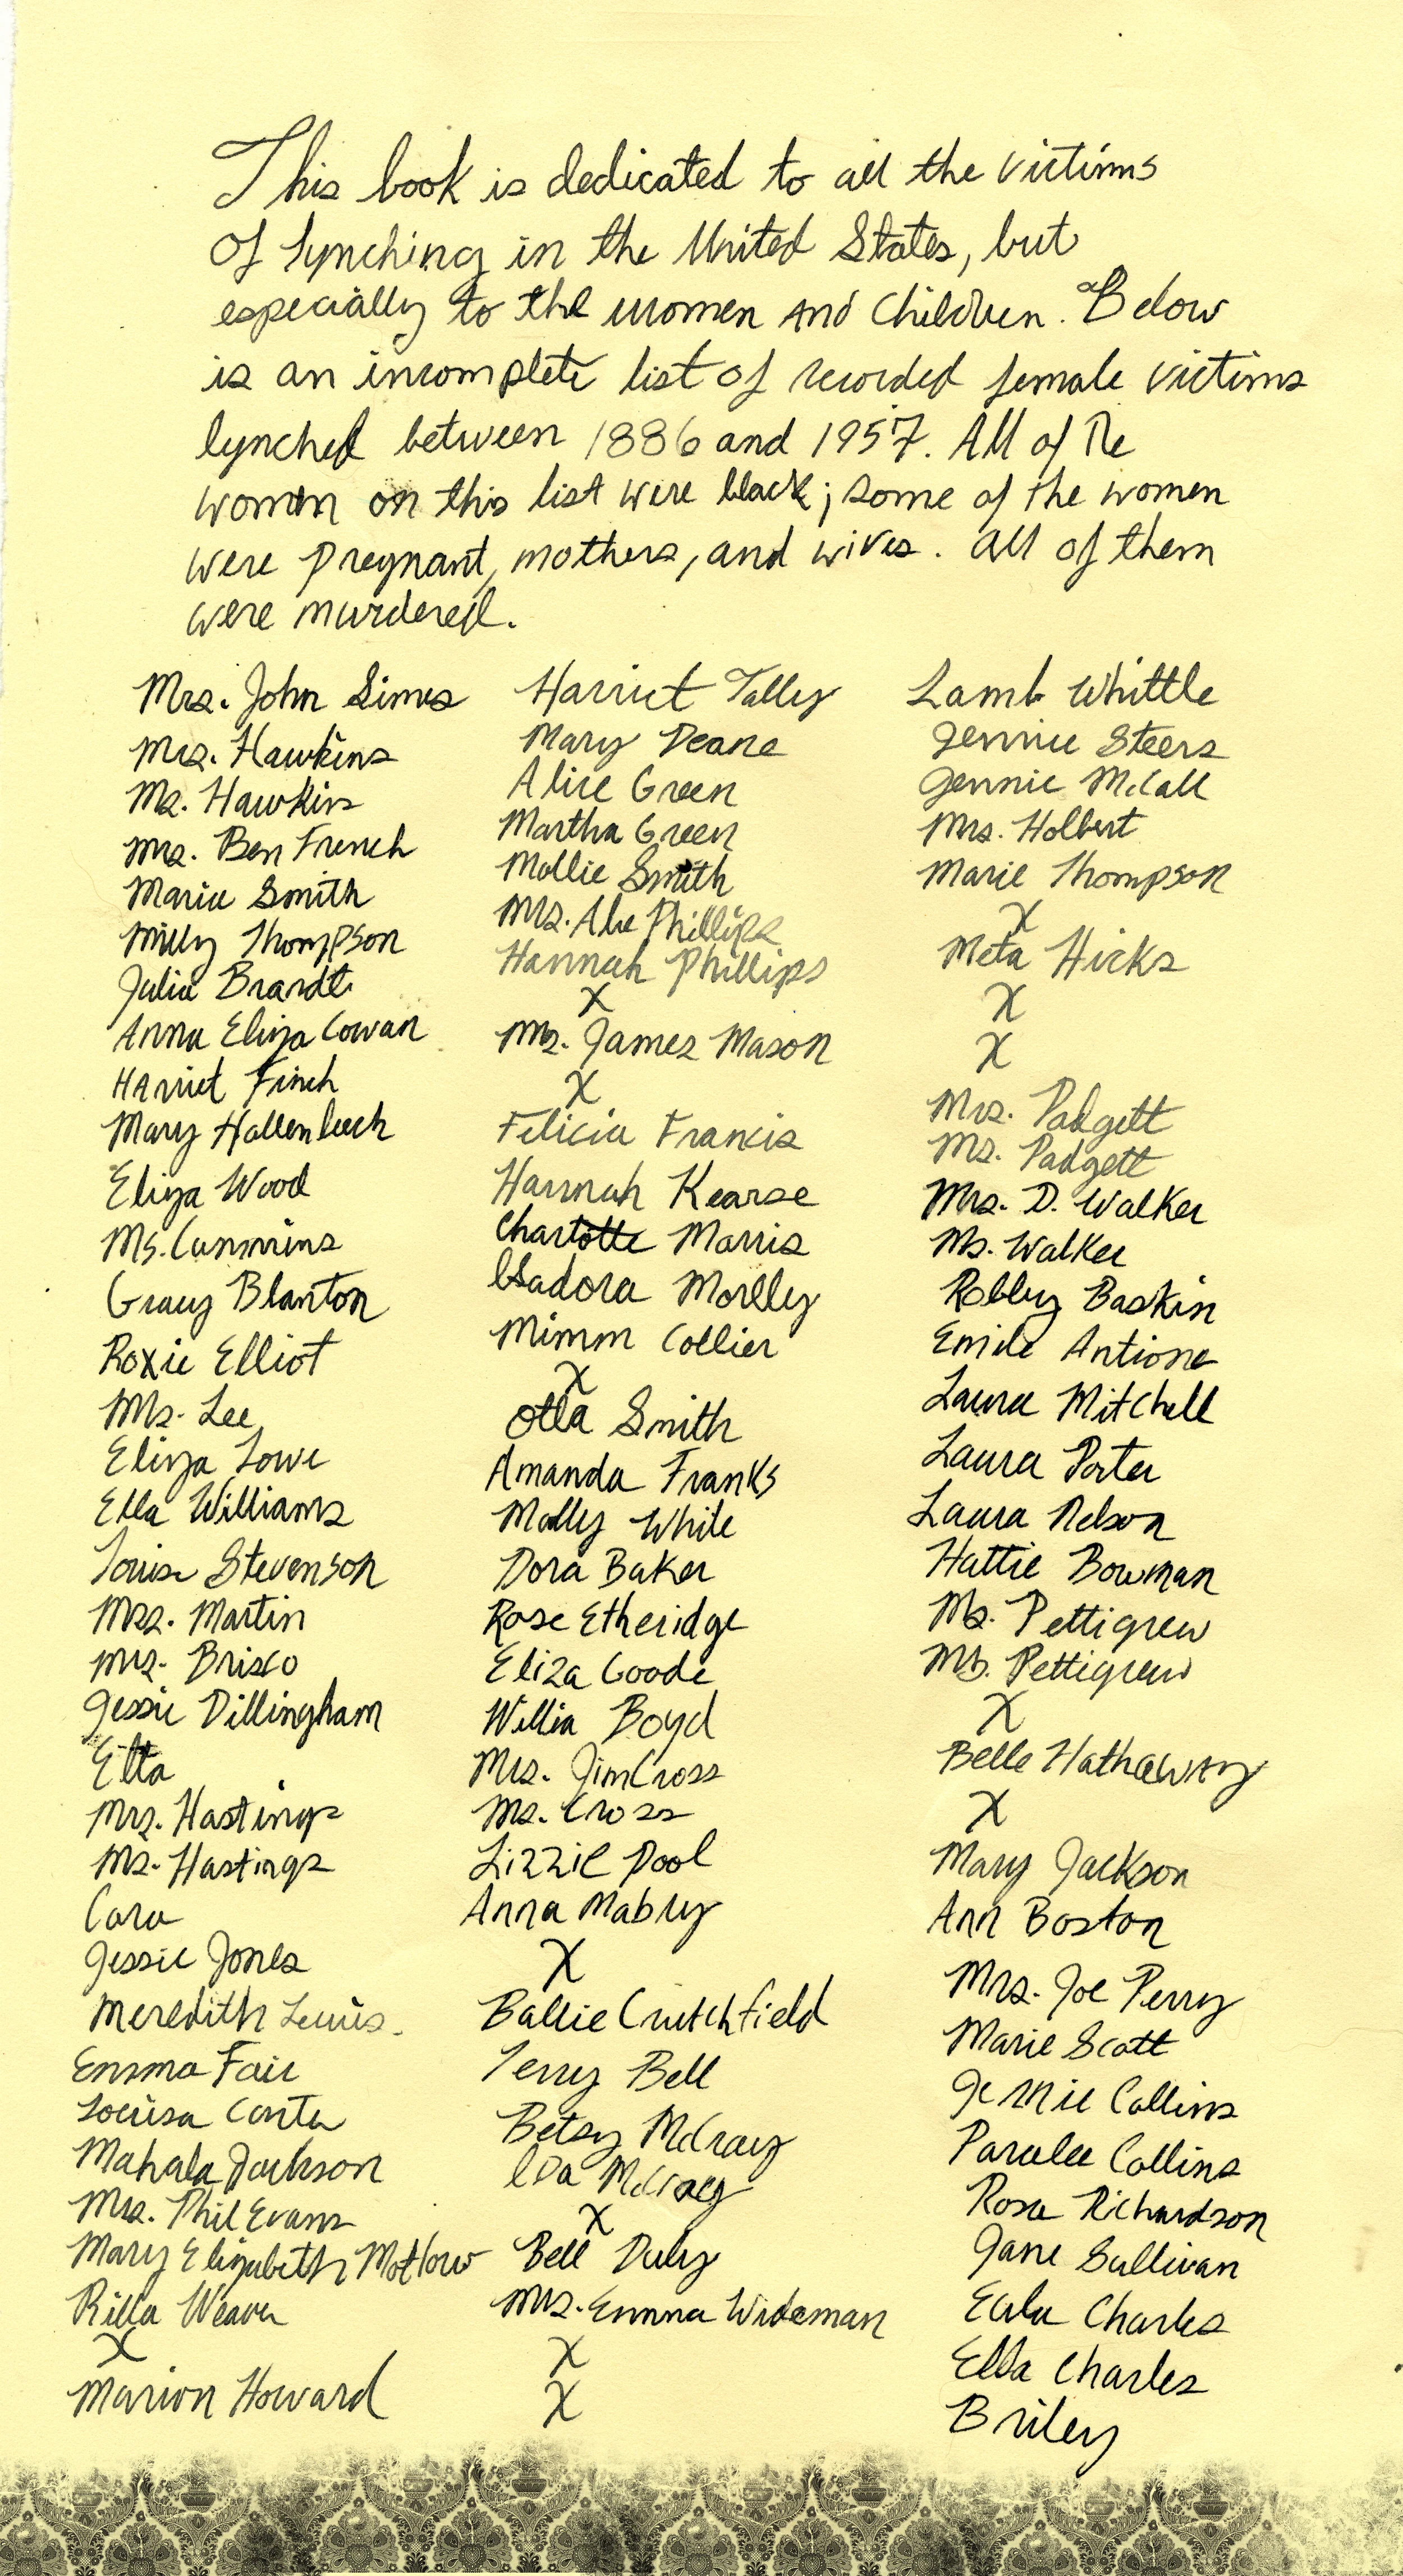 This book is dedicated to all the victims
of lynching in the United States, but
especially to the women and children. Below
is an incomplete list of recorded female victims
lynched between 1886 and 1957. All of the
women on this list were black; some of the women
were pregnant, mothers, and wives. All of them
were murdered.
Mrs. John Simes
Mrs. Hawkins
Ms. Hawkins
Mrs. Ben French
Marie Smith
Milly Thompson
Julia Brandt
Anna Eliza Cowan
Harriet Finch
Mary Hallenbeck
Eliza Wood
Ms. Cummins
Gracy Blanton
Roxie Elliot
Ms. Lee
Eliza Lowe
Ella Williams
Louise Stevenson
Mrs. Martin
Mrs. Brisco
Jessie Dillingham
Etta
Mrs. Hastings
Ms. Hastings
Cara
Jessie Jones
Meredith Lewis.
Emma Fair
Louisa Carter
Mahala Jackson
Mrs. Phil Evans
Mary Elizabeth Motlow
Rilla Weaver
X
Marion Howard
Harriet Tally
Mary Deane
Alice Green
Martha Green
Mollie Smith
Mrs. Abe Phillips
Hannah Phillips
X
Ms. James Mason
X
Felicia Francis
Hannah Kearse
Charlotte Morris
Isadora Morlly
Mimm Collier
X
Otla Smith
Amanda Franks
Molly White
Dora Baker
Rose Etheridge
Eliza Goode
Willia Boyd
Mrs. Jim Cross
Ms. Cross
Lizzie Pool
Anna Mabry
X
Ballie Crutchfield
Terry Bell
Betsy McCray
Ida McCray
X
Bell Duly
Mrs. Emma Wideman
X
X
Lamb Whittle
Jennie Steers
Jennie McCall
Mrs. Holbert
Marie Thompson
X
Meta Hicks
X
X
Mrs. Padgett
Ms. Padgett
Mrs. D. Walker
Ms. Walker
Robby Baskin
Emile Antione
Laura Mitchell
Laura Porter
Laura Nelson
Hattie Bowman
Ms. Pettigrew
Ms. Pettigrew
X
Belle Hathaway
X
Mary Jackson
Ann Boston
Mrs. Joe Perry
Marie Scott
Jennie Collins
Paralee Collins
Rosa Richardson
Jane Sullivan
Eula Charles
Ella Charles
Briley